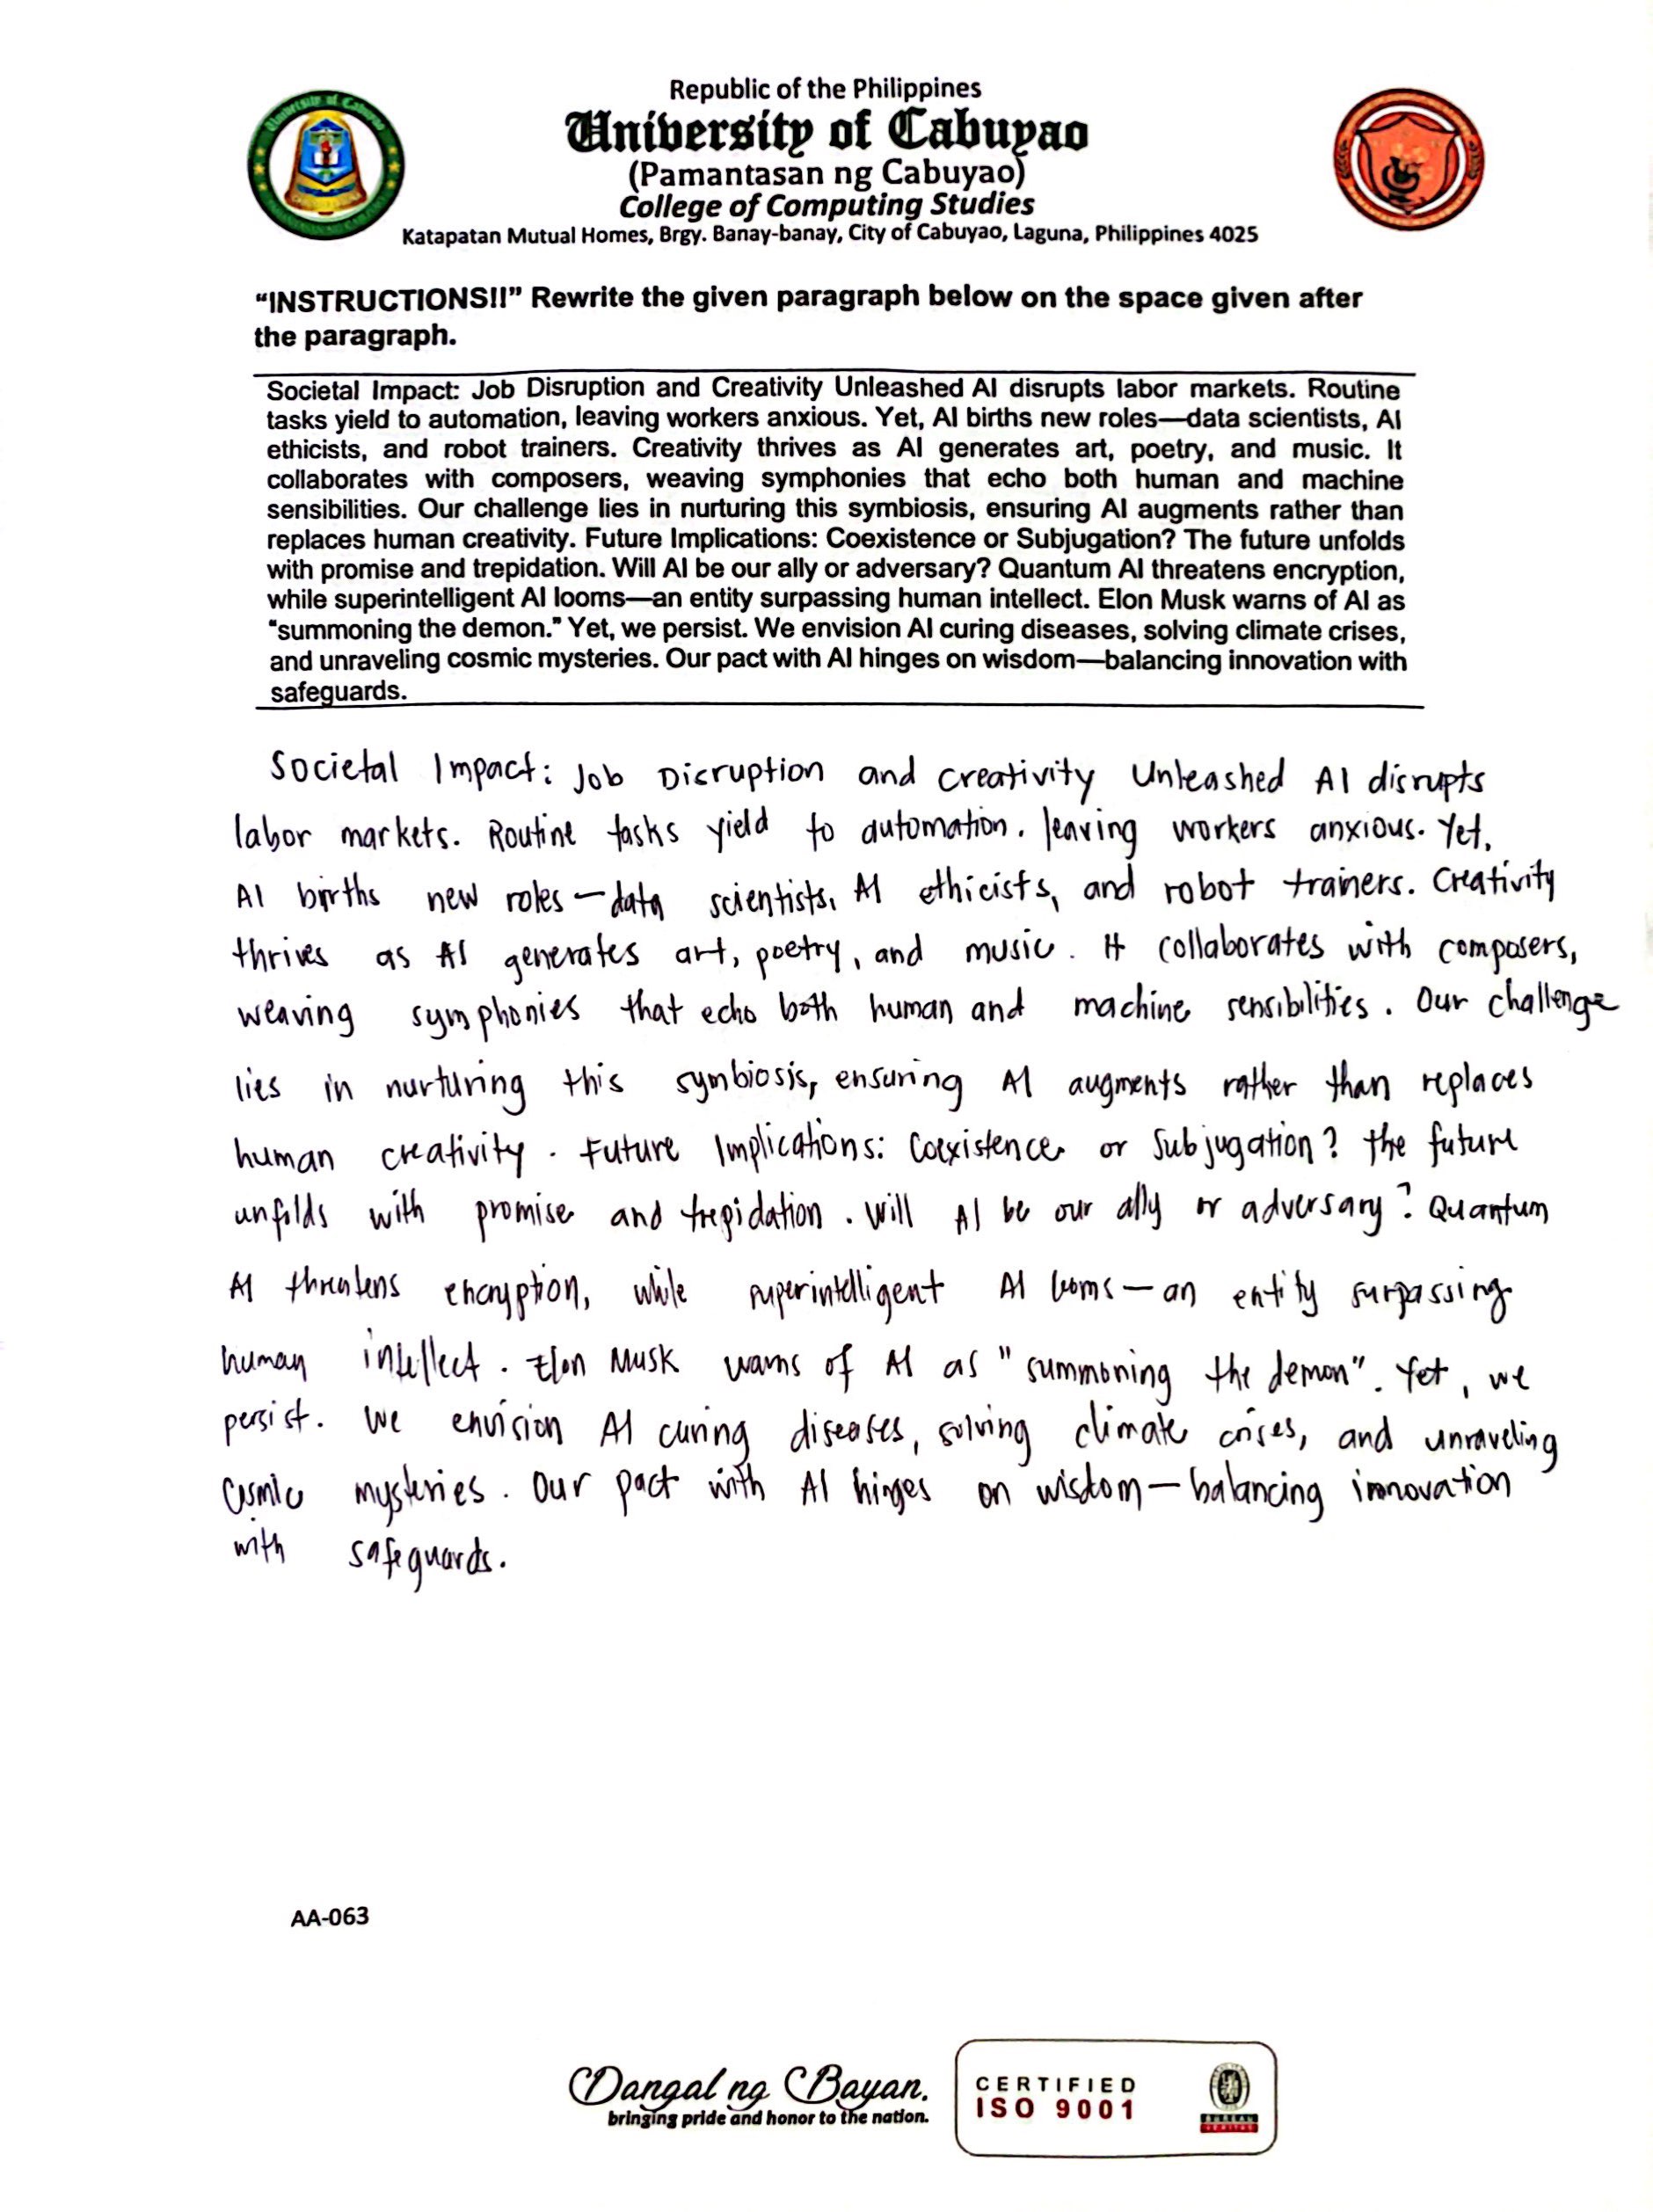 Republic of the Philippines
University of Cabuyao
(Pamantasan ng Cabuyao)
College of Computing Studies
Katapatan Mutual Homes, Brgy. Banay-banay, City of Cabuyao, Laguna, Philippines 4025
“INSTRUCTIONS!!” Rewrite the given paragraph below on the space given after
the paragraph.
Societal Impact: Job Disruption and Creativity Unleashed AI disrupts labor markets. Routine
tasks yield to automation, leaving workers anxious. Yet, AI births new roles—data scientists, AI
ethicists, and robot trainers. Creativity thrives as AI generates art, poetry, and music. It
collaborates with composers, weaving symphonies that echo both human and machine
sensibilities. Our challenge lies in nurturing this symbiosis, ensuring AI augments rather than
replaces human creativity. Future Implications: Coexistence or Subjugation? The future unfolds
with promise and trepidation. Will AI be our ally or adversary? Quantum AI threatens encryption,
while superintelligent AI looms—an entity surpassing human intellect. Elon Musk warns of AI as
“summoning the demon.” Yet, we persist. We envision AI curing diseases, solving climate crises,
and unraveling cosmic mysteries. Our pact with AI hinges on wisdom—balancing innovation with
safeguards.
Societal Impact: Job Disruption and Creativity Unleashed AI disrupts
labor markets. Routine tasks yield to automation. leaving workers anxious. Yet,
AI births new roles — data scientists, AI ethicists, and robot trainers. Creativity
thrives as AI generates art, poetry, and music. It collaborates with composers,
weaving symphonies that echo both human and machine sensibilities. Our challenge
lies in nurturing this symbiosis, ensuring AI augments rather than replaces
human creativity. Future Implications: Coexistence or Subjugation? The future
unfolds with promise and trepidation. Will AI be our ally or adversary? Quantum
AI threatens encryption, while superintelligent AI looms — an entity surpassing
human intellect. Elon Musk warns of AI as "summoning the demon". Yet, we
persist. We envision AI curing diseases, solving climate crises, and unraveling
Cosmic mysteries. Our pact with AI hinges on wisdom — balancing innovation
with safeguards.
AA-063
Dangal ng Bayan.
bringing pride and honor to the nation.
CERTIFIED
ISO 9001
BUREAU
VERITAS